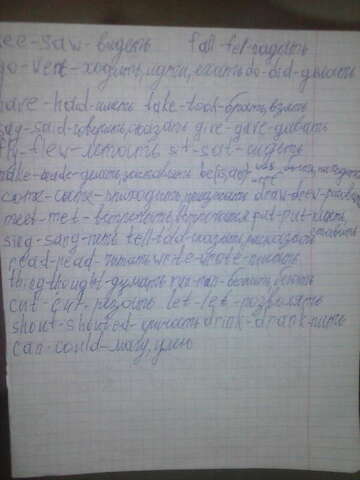 see-saw-видеть fall-fell-падать
go-went-ходить, идти, ехать do-did-делать
have-hahd-иметь take-took-брать, взять
say-said-говорить, сказать give-gave-давать
fly-flew-летать sit-sat-сидеть
make-made-делать, be(is, are)-was
came-came-приходить, draw-drew-
meet-met-встречать, встречаться put-put-класть,
sing-sang-петь tell-told-сказать, рассказать ставить
read-read-читать write-wrote-писать
thing-thought-думать run-ran-бегать, бежать
cut-cut-резать let-let-позволять
shout-shouted-кричать drink-drank-пить
can-could-могу, умею